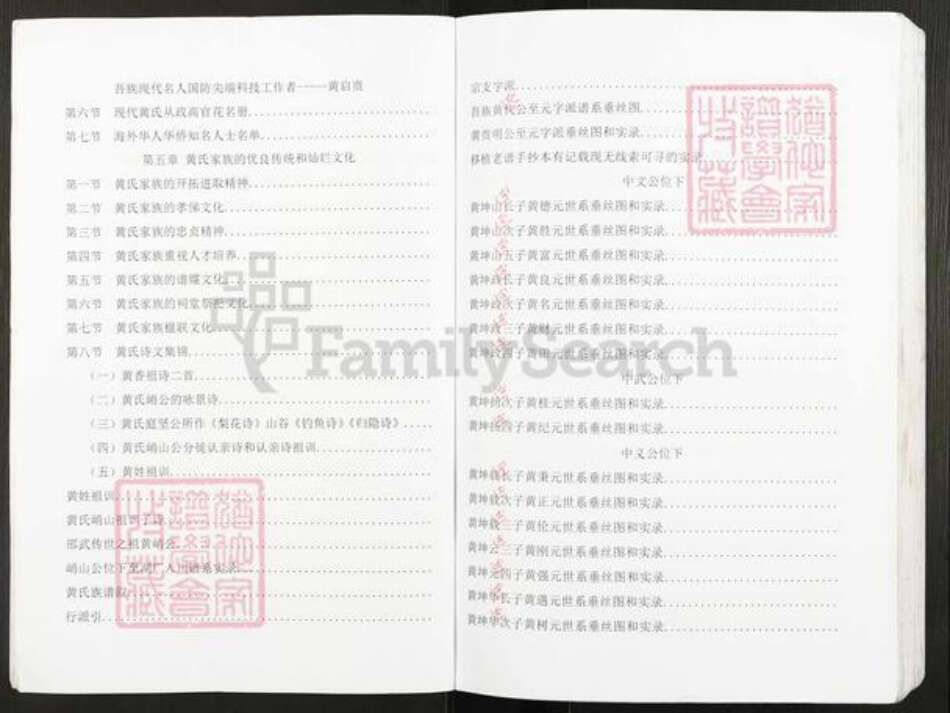 吾族现代名人国防尖端科技工作者----黄启贵
第六节 现代黄氏从政高官花名册
第七节 海外华人华侨知名人士名单
第五章 黄氏家族的优良传统和灿烂文化
第一节 黄氏家族的开拓进取精神
第二节 黄氏家族的孝悌文化
第三节 黄氏家族的忠贞精神
第四节 黄氏家族重视人才培养
第五节 黄氏家族的谱牒文化
第六节 黄氏家族的祠堂祭祀文化
第七节 黄氏家族楹联文化
第八节 黄氏诗文集锦
(一)黄香祖诗二首
(二)黄氏峭公的咏景诗
(三)黄氏庭坚公所作《梨花诗》山谷《钓鱼诗》《归隐诗》
(四)黄氏峭山公分徒认亲诗和认亲诗祖训
(五)黄姓祖训
黄姓祖训
黄氏峭山祖训子诗
邵武传世之祖黄峭公
峭山公位下至
黄氏族谱叙
行派引
宗支字派
吾族黄 公至元字派谱系垂丝图
黄贵明公至元字派垂丝图和实录
移植老谱手抄本有记载现无线索可寻的实录
中文公位下
黄坤山长子黄德元世系垂丝图和实录
黄坤山次子黄胜元世系垂丝图和实录
黄坤山五子黄富元世系垂丝图和实录
黄坤 长子黄良元世系垂丝图和实录
黄坤 次子黄名元世系垂丝图和实录
黄坤 三子黄财元世系垂丝图和实录
黄坤 四子黄田元世系垂丝图和实录
中武公位下
黄坤 次子黄桂元世系垂丝图和实录
黄坤 四子黄纪元世系垂丝图和实录
中文公位下
黄坤 长子黄秉元世系垂丝图和实录
黄坤 次子黄正元世系垂丝图和实录
黄坤 三子黄伦元世系垂丝图和实录
黄坤 三子黄刚元世系垂丝图和实录
黄坤 四子黄强元世系垂丝图和实录
黄坤华长子黄遇元世系垂丝图和实录
黄坤华次子黄柯元世系垂丝图和实录
FamilySearch